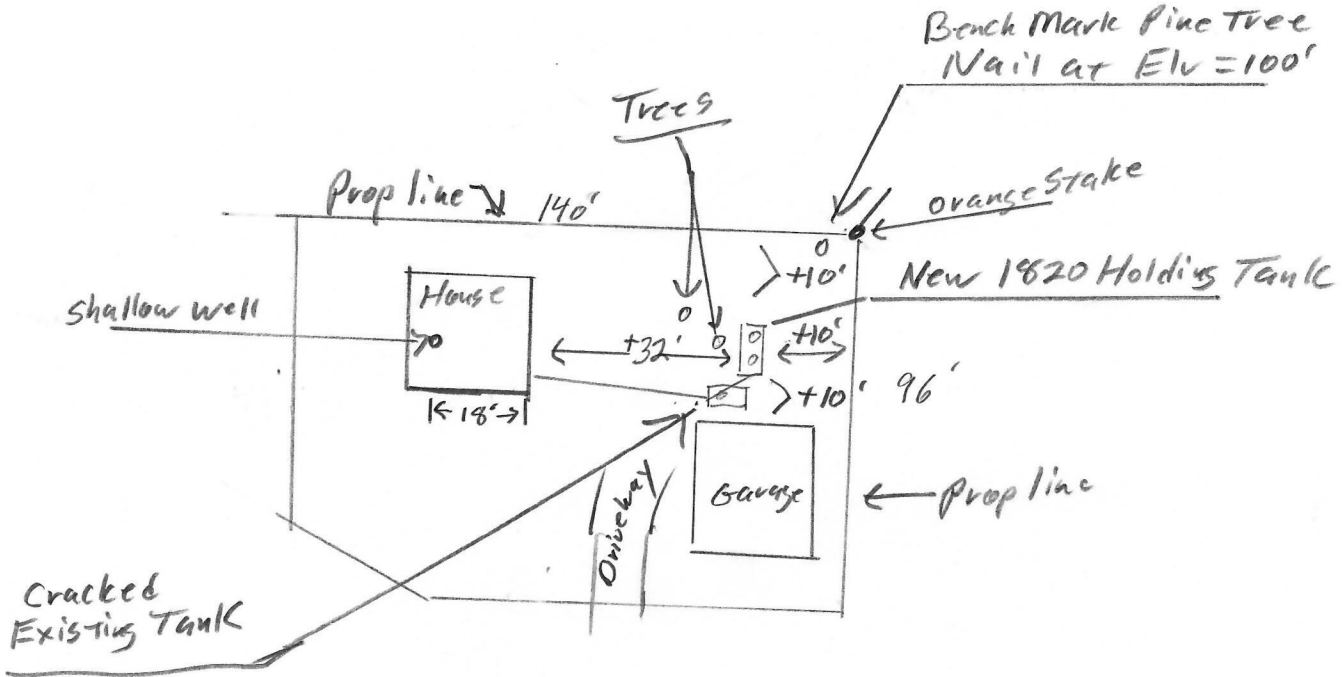 Bench Mark Pine Tree
Nail at Elv = 100'
Trees
Prop line
140'
orange Stake
+10'
New 1820 Holding Tank
House
Shallow well
+32'
+10'
+10'
96'
18'
Driveway
Garage
Prop line
Cracked
Existing Tank